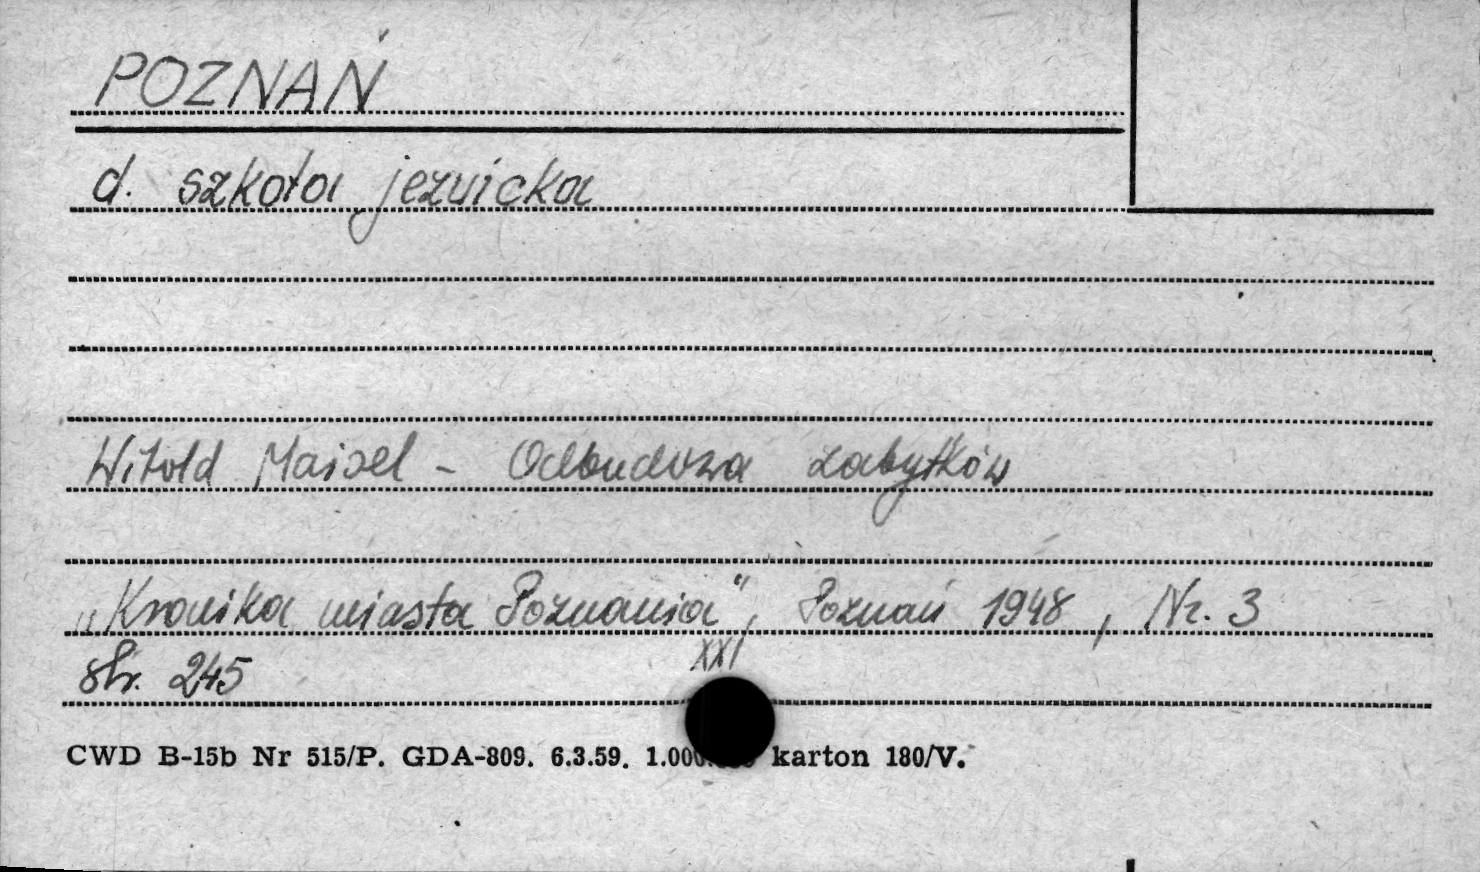 POZNAŃ
d. szkoła jezuicka
Witold Maisel - Odbudowa zabytków
„Kronika miasta Poznania", Poznań 1948, Nr. 3
XXI
str. 245
CWD B-15b Nr 515/P. GDA-809. 6.3.59. karton 180/V.